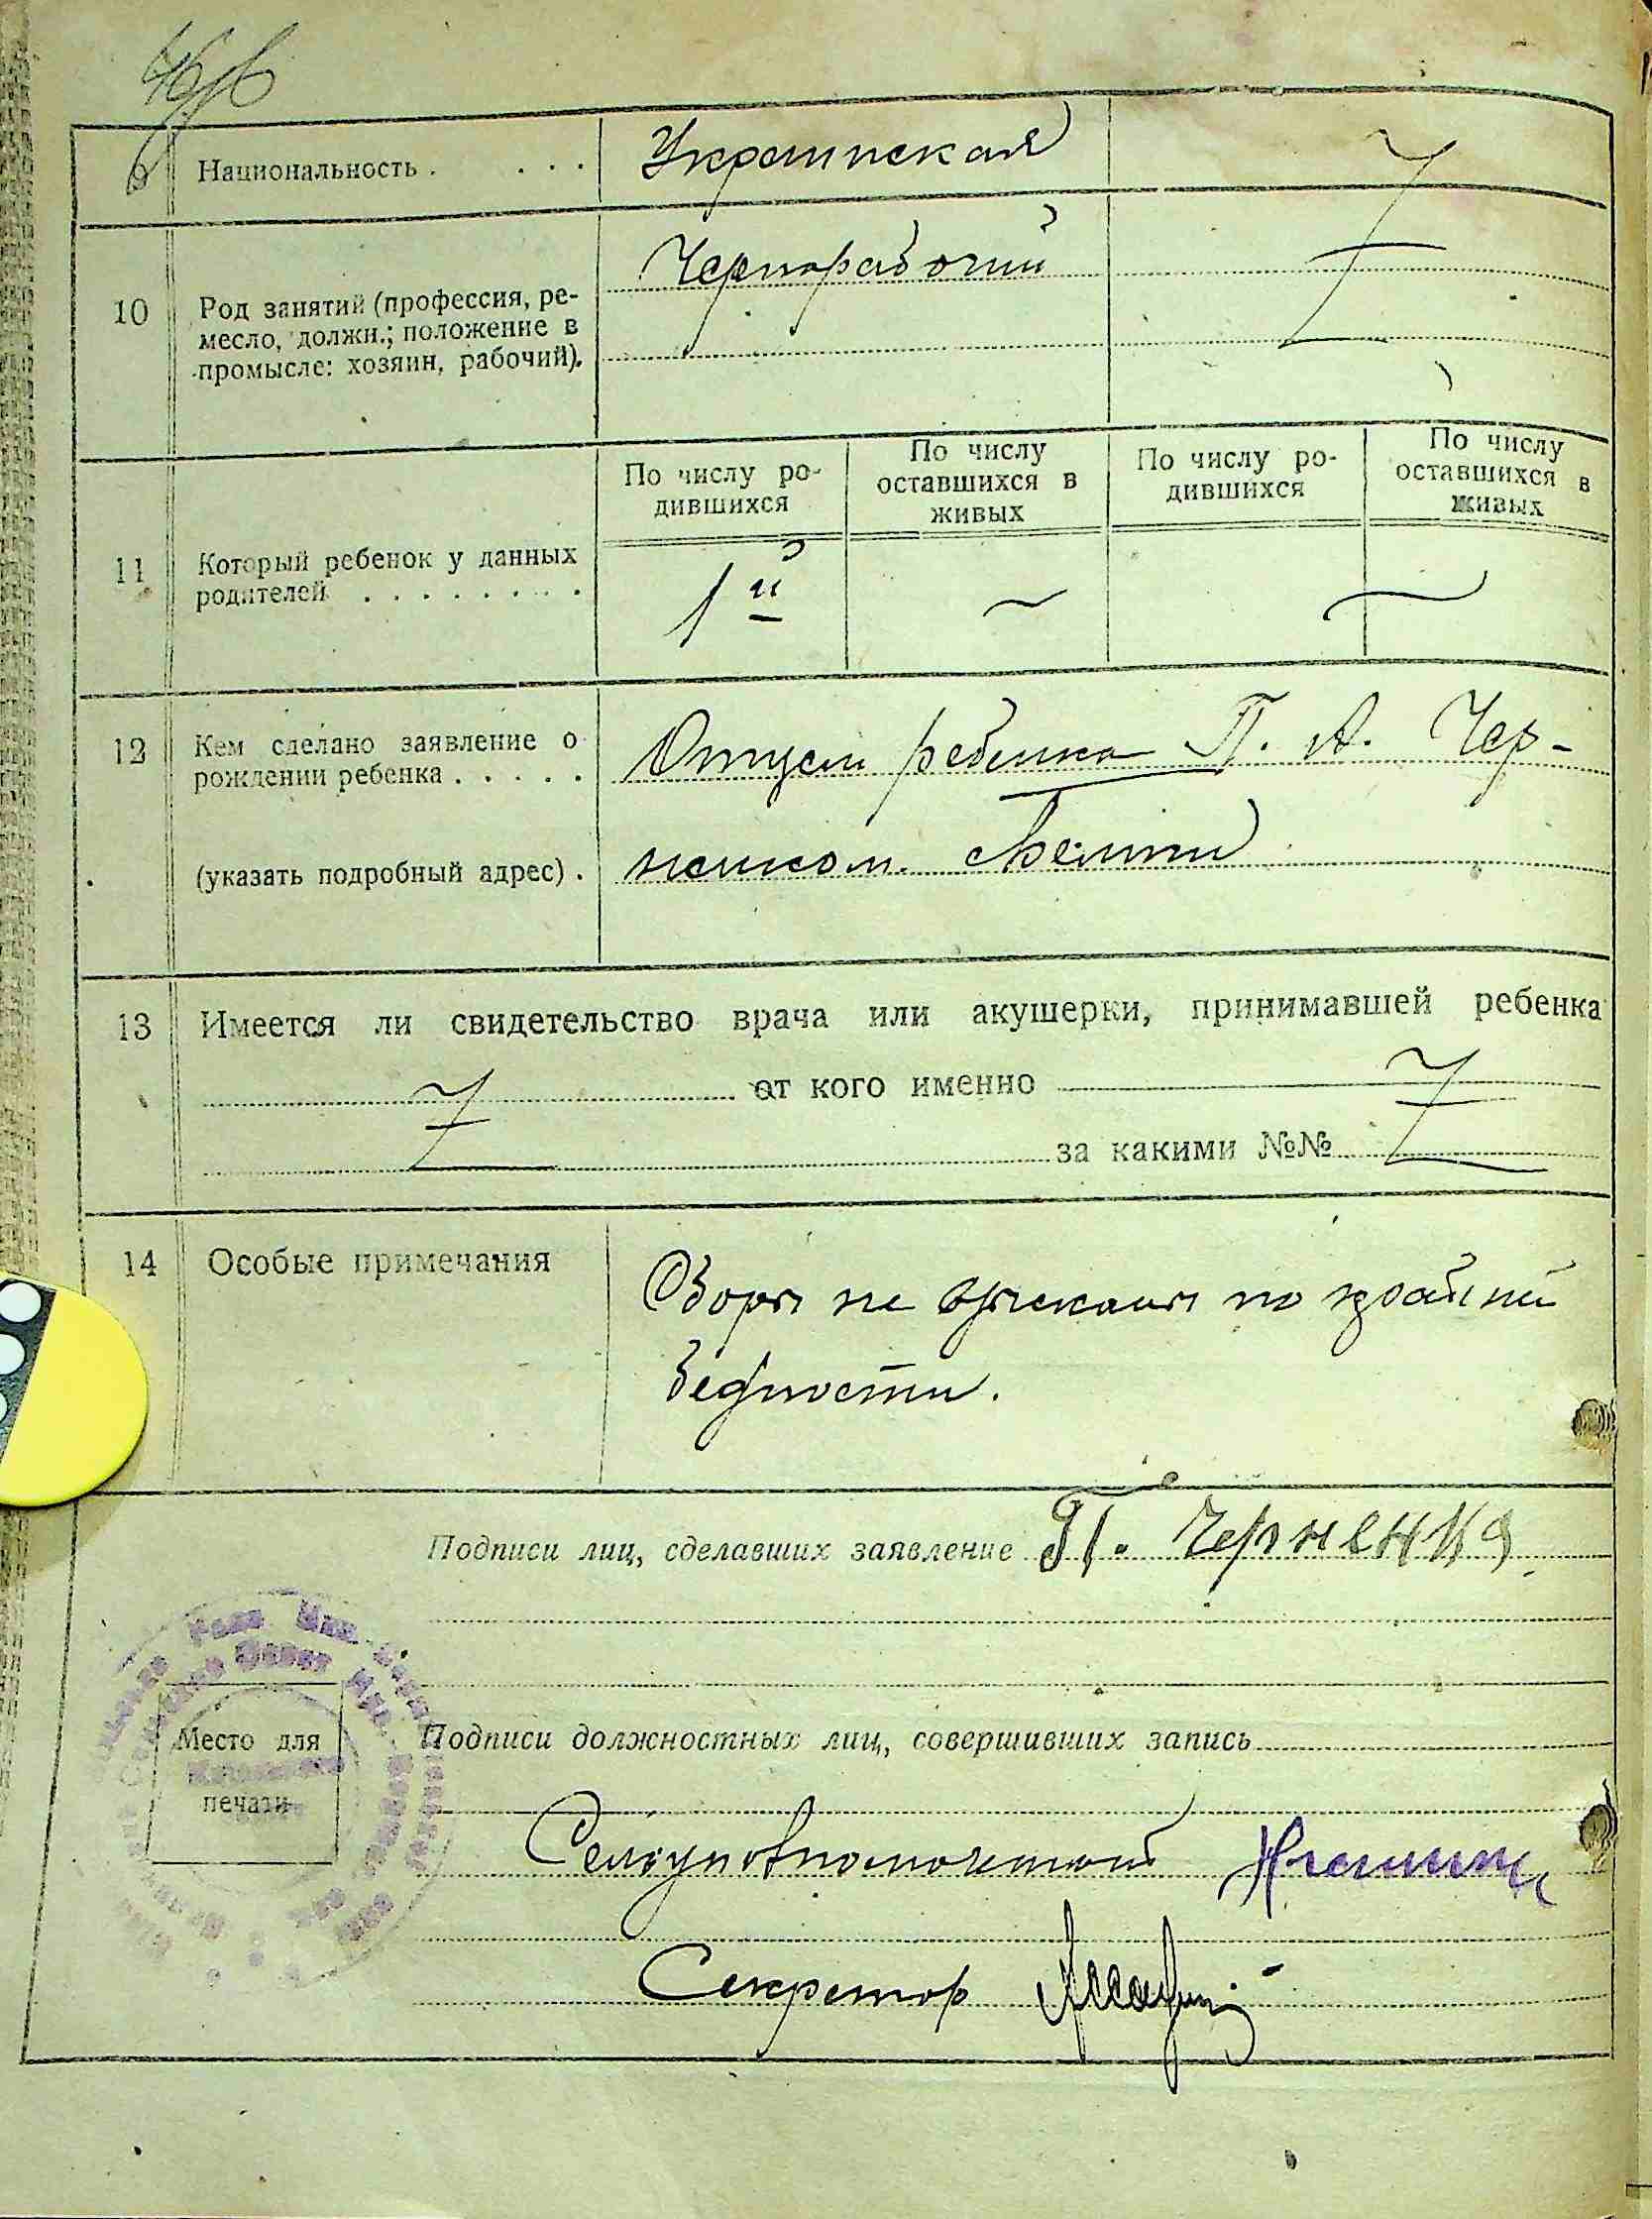 9 Национальность . . . . Украинская
Чернорабочий
10 Род занятий (профессия, ре-
месло, должн.; положение в
промысле: хозяин, рабочий).
По числу ро-
дившихся
По числу
оставшихся в
живых
По числу ро-
дившихся
По числу
оставшихся в
живых
11 Который ребенок у данных
родителей . . . . . . . . .
1й
12 Кем сделано заявление о
рождении ребенка . . . . .
Отцем ребенка П. А. Чер-
(указать подробный адрес) .
ненком.
13 Имеется ли свидетельство врача или акушерки, принимавшей ребенка
от кого именно
за какими №№
14 Особые примечания
Сбора не взыскана по крайней
бедности.
Подписи лиц, сделавших заявление П. Черненка
Место для
печати
Подписи должностных лиц, совершивших запись
Секретар